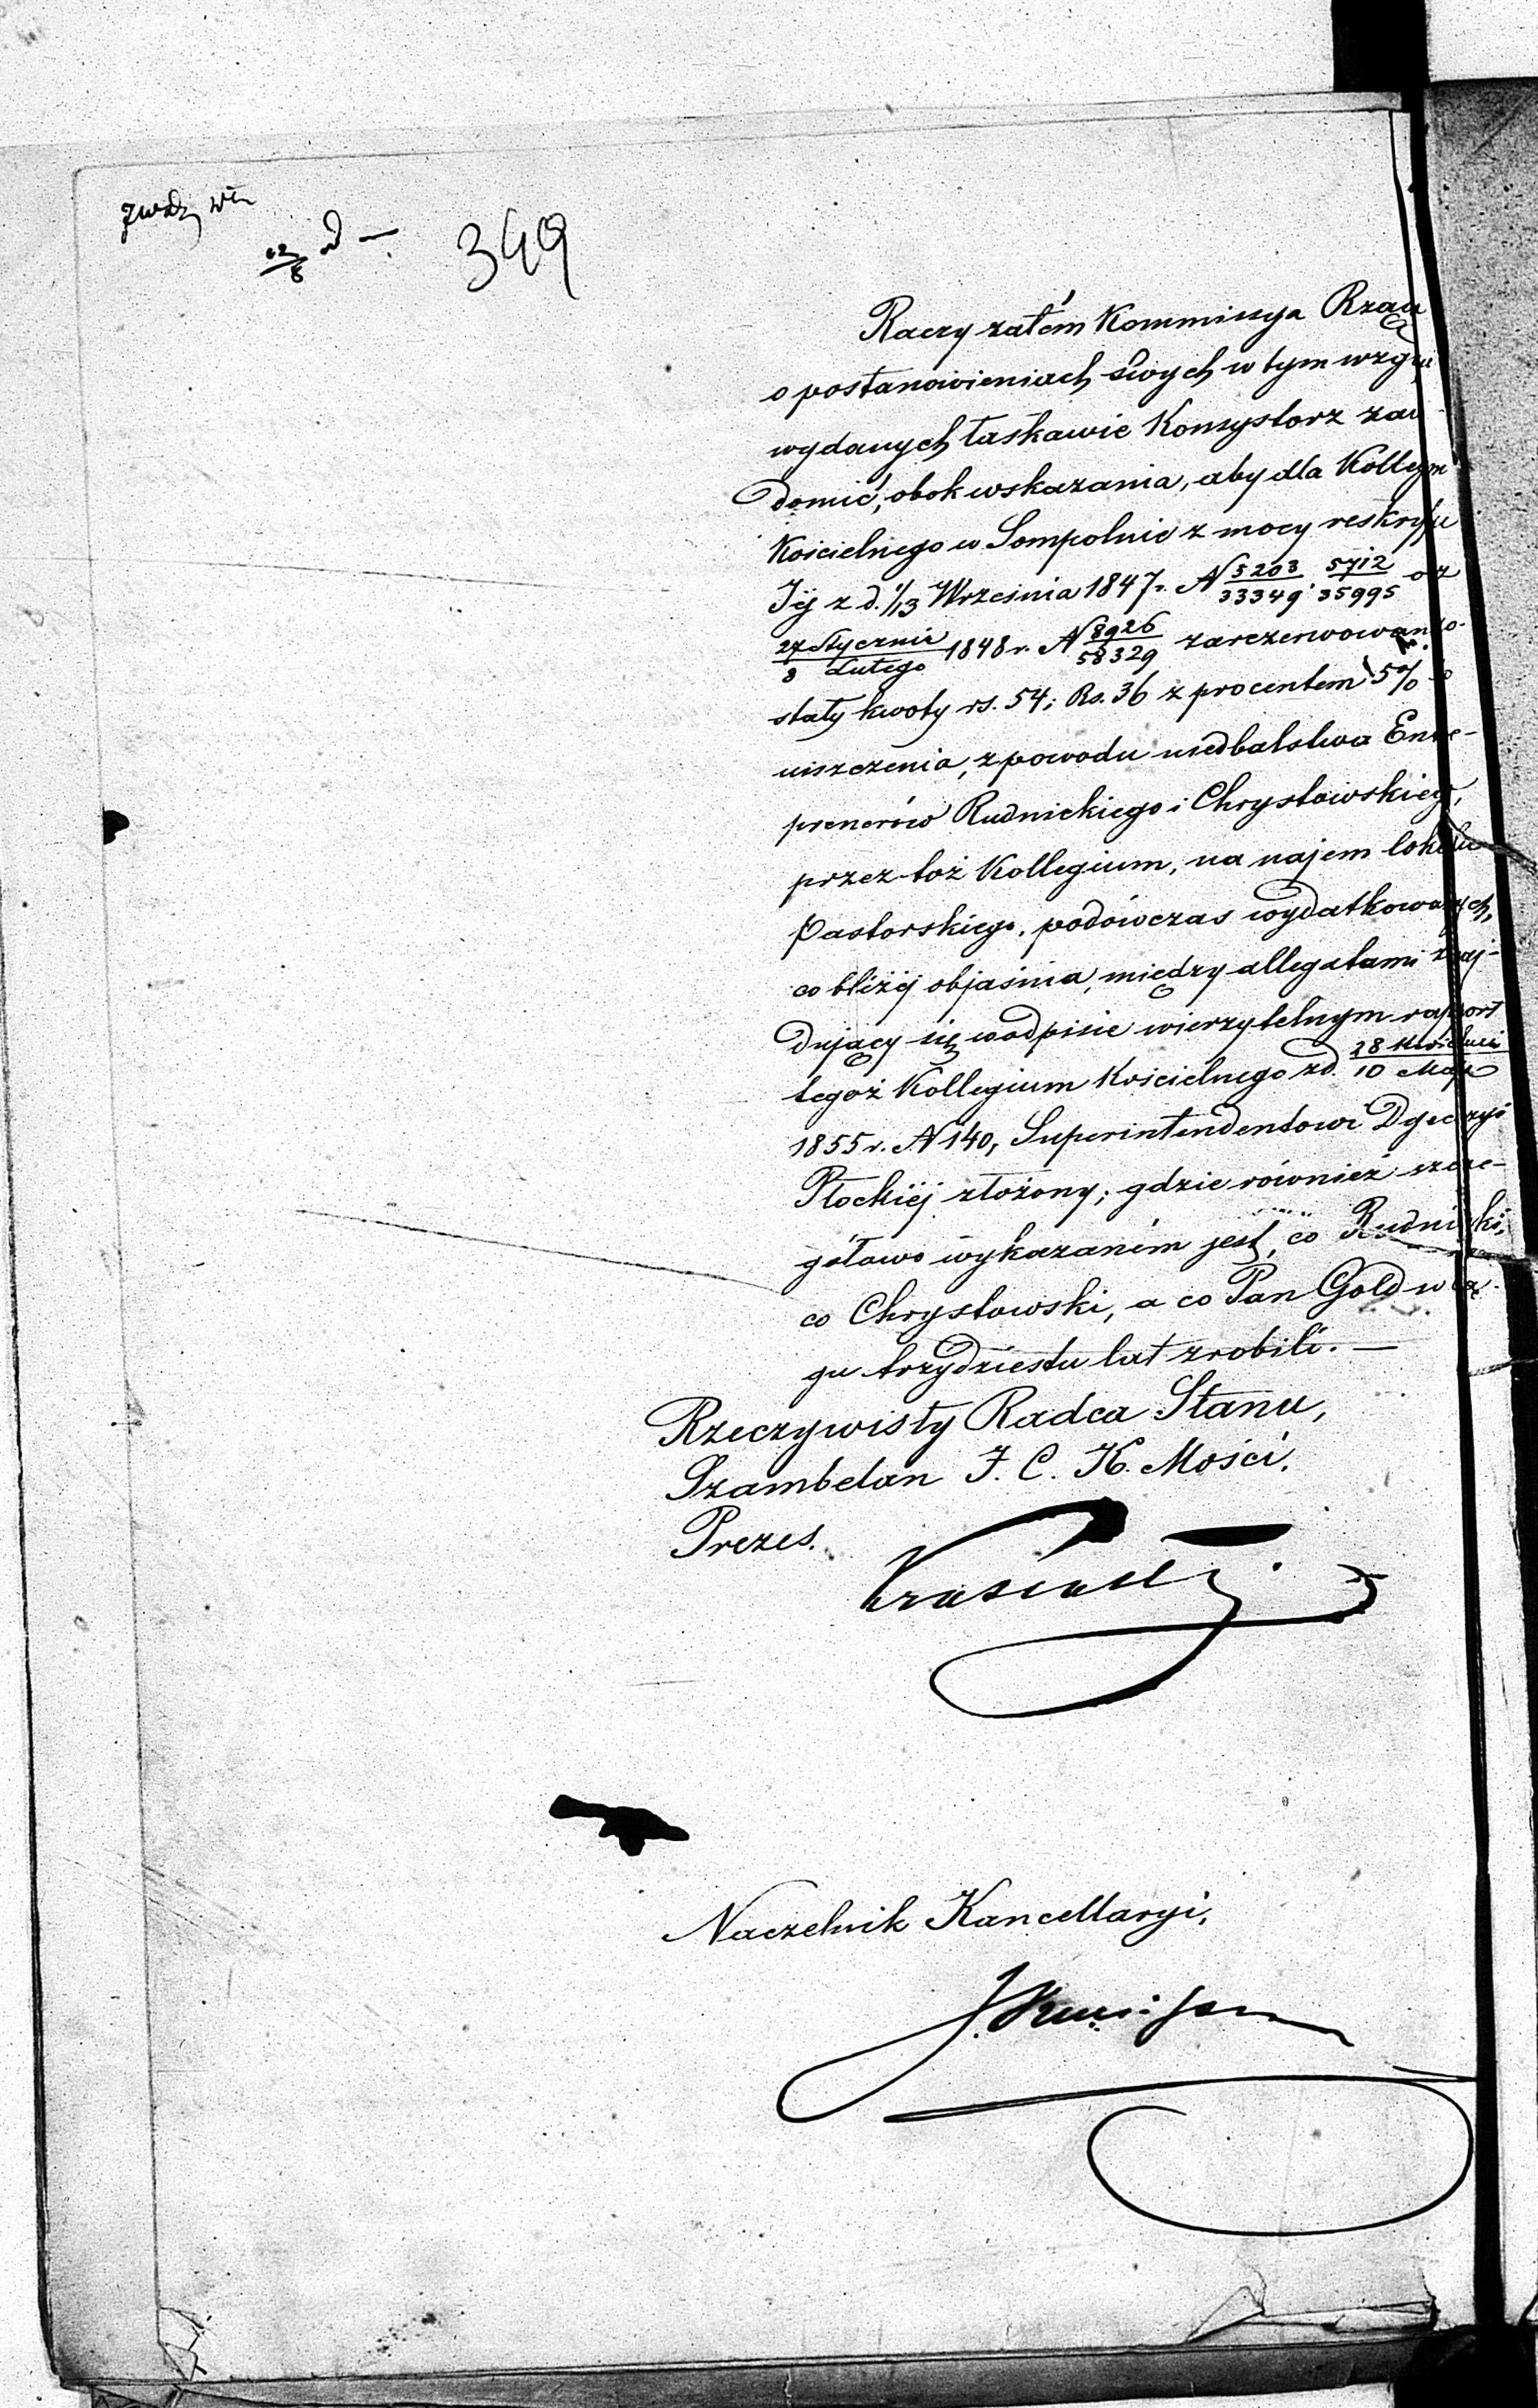 349
Raczy zatém Kommissya Rząd
o postanowieniach swych w tym wzglę
wydanych łaskawie Konsystorz zawi
domić, obok wskazania, aby dla Kollegium
Kościelnego w Sompolnie z mocy reskryp
Jéj z d. 1/13 Września 1847 r. N 5203/33349. 5712/35995 oraz
27 Stycznia/8 Lutego 1848 r. N 8926/58329 zarezerwowan zo-
stały kwoty rs. 54; Rs. 36 z procentem 5% do
uiszczenia, z powodu niedbalstwa Entre-
prenerów Rudnickiego i Chrystowskiego,
przez toż Kollegium, na najem lokalu
Pastorskiego, podówczas wydatkowanych,
co bliżéj objaśnia, między allegatami znaj-
dujący się w odpisie wierzytelnym raport
tegoż Kollegium Kościelnego z d. 28 Kwietnia/10 Maja
1855 r. N 140, Superintendentowi Dyecezyi
Płockiéj złożony; gdzie również szcze-
gółowo wykazaném jest, co Rudnicki,
co Chrystowski, a co Pan Gold w cią-
gu trzydziestu lat zrobili. —
Rzeczywisty Radca Stanu,
Szambelan J. C. K. Mości,
Prezes.
Naczelnik Kancellaryi,